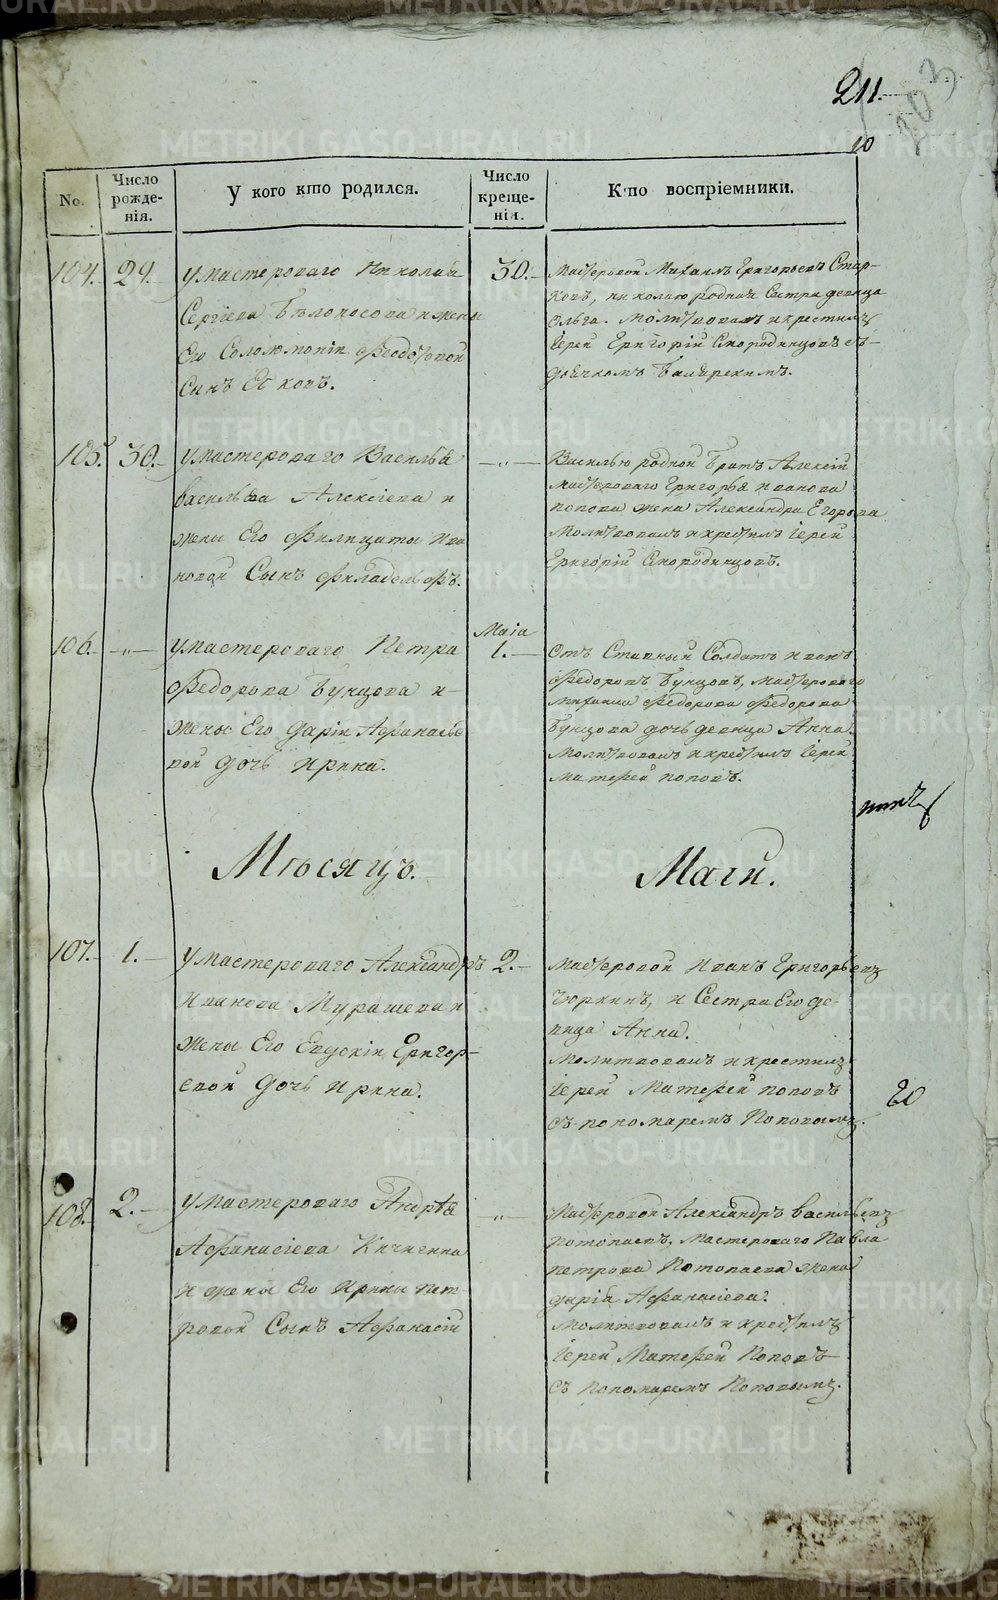 211.
103
10
No.
Число рожденія.
У кого кто родился.
Число крещенія.
Кто воспріемники.
104. 29.
умастероваго Николая
Сергіева Бѣлоносова ижены
Его Соломоніи Федотовой
Сынъ
30.
Мастеровой Михаилъ Григорьевъ Стар-
ковъ, николаю родная Сестра девица
Ольга. Молитвовалъ икрестилъ
Іерей Григорій Смородинцовъ съ
дьячкомъ
105. 30.
умастероваго Василья
васильева Алексіева и
жены Его Филицаты Ива
новой Сынъ Филадельфъ.
—„—
Василью родной Братъ Алексій
мастероваго Григорья Иванова
попова жена Александра Егорова
Молитвовалъ икрестилъ Іерей
Григорій Смородинцовъ.
106. —„—
умастероваго Петра
Федорова Бунцова и
жены Его Даріи Афанасье
вой дочь Ирина.
Маія
1.
Отъ Ставный Солдатъ Иванъ
Федоровъ Бунцовъ, мастероваго
Федорова Федорова
Бунцова дочь девица Анна.
Молитвовалъ икрестилъ Іерей
Матфей поповъ.
Мѣсяцъ.
Маій.
107. 1.
умастероваго Александръ
Иванова Мурашева и
жены Его Евдокіи Григор-
евой дочь Ирина.
2.
мастеровой Иванъ Григорьевъ
Чюркинъ, и Сестра Его де-
вица Анна.
Молитвовалъ икрестилъ
Іерей Матфей поповъ
съ пономаремъ Поповымъ.
20
108. 2.
умастероваго Андрѣя
Афанасіева Кичигина
и жены Его Ирины пет-
ровой Сынъ Афанасій
„
Мастеровой Александръ васильевъ
потопаевъ, мастероваго Павла
петрова Потопаева жена
дарія Афанасіева.
Молитвовалъ икрестилъ
Іерей Матфей Поповъ
съ Пономаремъ Поповымъ.
METRIKI.GASO-URAL.RU